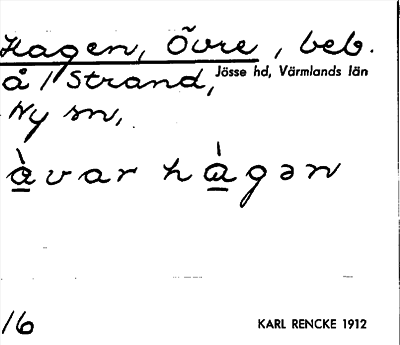 Hagen, Övre, beb.
å 1/ Strand, Jösse hd, Värmlands län
Ny sn,
àvar hàgən
16 KARL RENCKE 1912